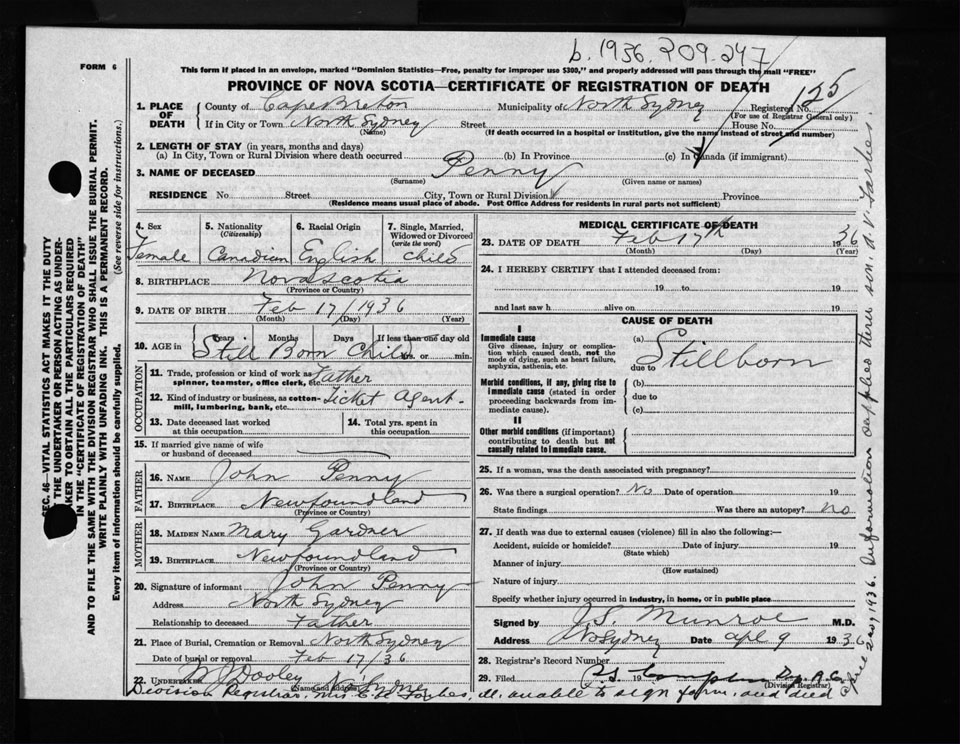 b. 1936. 209-247
FORM 6
This form if placed in an envelope, marked "Dominion Statistics—Free, penalty for improper use $300," and properly addressed will pass through the mail "FREE"
PROVINCE OF NOVA SCOTIA—CERTIFICATE OF REGISTRATION OF DEATH
125
1. PLACE OF DEATH
County of Cape Breton Municipality of North Sydney Registered No.
(For use of Registrar General only)
If in City or Town North Sydney Street House No.
(Name) (If death occurred in a hospital or institution, give the name instead of street and number)
2. LENGTH OF STAY (in years, months and days)
(a) In City, Town or Rural Division where death occurred (b) In Province (c) In Canada (if immigrant)
3. NAME OF DECEASED Penny
(Surname) (Given name or names)
RESIDENCE No Street City, Town or Rural Division Province
(Residence means usual place of abode. Post Office Address for residents in rural parts not sufficient)
4. Sex
Female
5. Nationality
(Citizenship)
Canadian
6. Racial Origin
English
7. Single, Married, Widowed or Divorced
(write the word)
Child
8. BIRTHPLACE Nova Scotia
(Province or Country)
9. DATE OF BIRTH Feb 17/1936
(Month) (Day) (Year)
10. AGE in Years Months Days If less than one day old
Still Born Child hrs. or min.
OCCUPATION
11. Trade, profession or kind of work as Father
spinner, teamster, office clerk, etc.
12. Kind of industry or business, as cotton- Ticket Agent.
mill, lumbering, bank, etc.
13. Date deceased last worked at this occupation
14. Total yrs. spent in this occupation
15. If married give name of wife or husband of deceased
FATHER
16. NAME John Penny
17. BIRTHPLACE Newfoundland
(Province or Country)
MOTHER
18. MAIDEN NAME Mary Gardner
19. BIRTHPLACE Newfoundland
(Province or Country)
20. Signature of informant John Penny
Address North Sydney
Relationship to deceased Father
21. Place of Burial, Cremation or Removal North Sydney
Date of burial or removal Feb 17/36
22. UNDERTAKER W J Dooley N. Sydney
(Name and address)
MEDICAL CERTIFICATE OF DEATH
23. DATE OF DEATH Feb 17th 1936
(Month) (Day) (Year)
24. I HEREBY CERTIFY that I attended deceased from:
19 to 19
and last saw h alive on 19
CAUSE OF DEATH
I
Immediate cause
Give disease, injury or complication which caused death, not the mode of dying, such as heart failure, asphyxia, asthenia, etc.
(a) Stillborn
due to
Morbid conditions, if any, giving rise to immediate cause (stated in order proceeding backwards from immediate cause).
(b)
due to
(c)
II
Other morbid conditions (if important) contributing to death but not causally related to immediate cause.
25. If a woman, was the death associated with pregnancy?
26. Was there a surgical operation? No Date of operation 19
State findings Was there an autopsy? no
27. If death was due to external causes (violence) fill in also the following:—
Accident, suicide or homicide? Date of injury 19
(State which)
Manner of injury
(How sustained)
Nature of injury
Specify whether injury occurred in industry, in home, or in public place
Signed by J.S. Munroe M.D.
Address No Sydney Date apl 9 1936
28. Registrar's Record Number
29. Filed 19
(Division Registrar)
Division Registrar, Mrs. Forbes, ill. unable to sign form, and died
1936. Information supplied thru son. A V Forbes.
SEC. 46—VITAL STATISTICS ACT MAKES IT THE DUTY
OF THE UNDERTAKER OR PERSON ACTING AS UNDERTAKER TO OBTAIN ALL THE PARTICULARS REQUIRED
IN THE "CERTIFICATE OF REGISTRATION OF DEATH"
AND TO FILE THE SAME WITH THE DIVISION REGISTRAR WHO SHALL ISSUE THE BURIAL PERMIT.
WRITE PLAINLY WITH UNFADING INK. THIS IS A PERMANENT RECORD.
Every item of information should be carefully supplied. (See reverse side for instructions.)